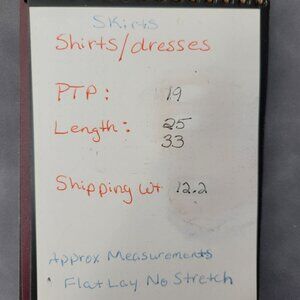 Skirts
Shirts/dresses
PTP: 19
Length: 25
33
Shipping wt 12.2
Approx Measurements
Flat Lay No Stretch